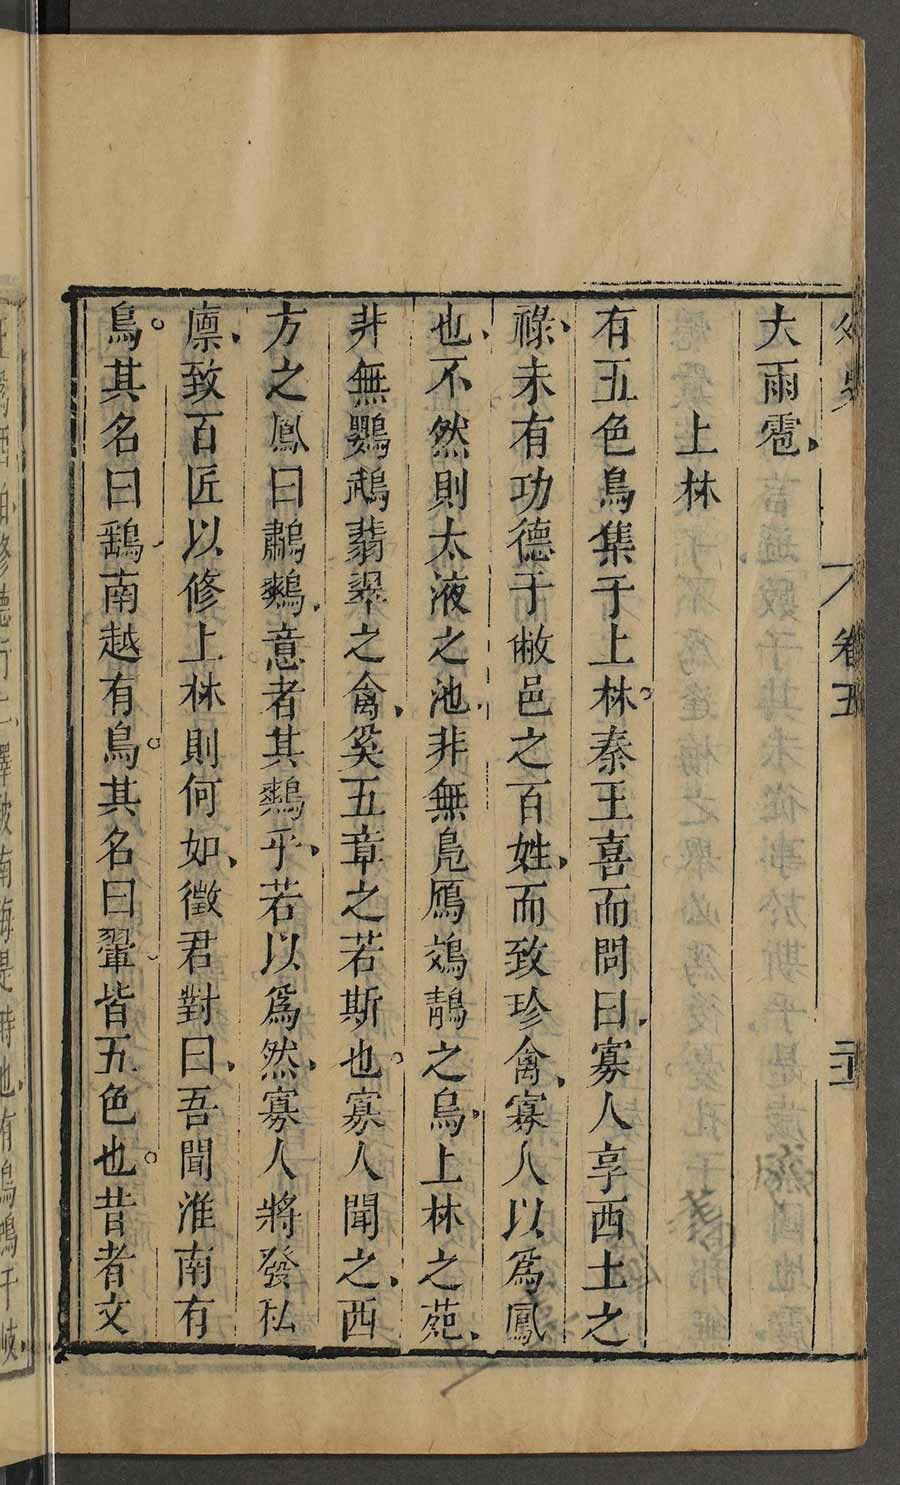 卷五
大雨雹
上林
有五色鳥集于上林秦王喜而問曰寡人享西土之
祿未有功德于敝邑之百姓而致珍禽寡人以爲鳳
也不然則太液之池非無鳧鴈鵁鶄之鳥上林之苑
非無鸚鵡翡翠之禽奚五章之若斯也寡人聞之西
方之鳳曰鷫鷞意者其鷞乎若以爲然寡人將發私
廩致百匠以修上林則何如徵君對曰吾聞淮南有
鳥其名曰鷂南越有鳥其名曰翬皆五色也昔者文